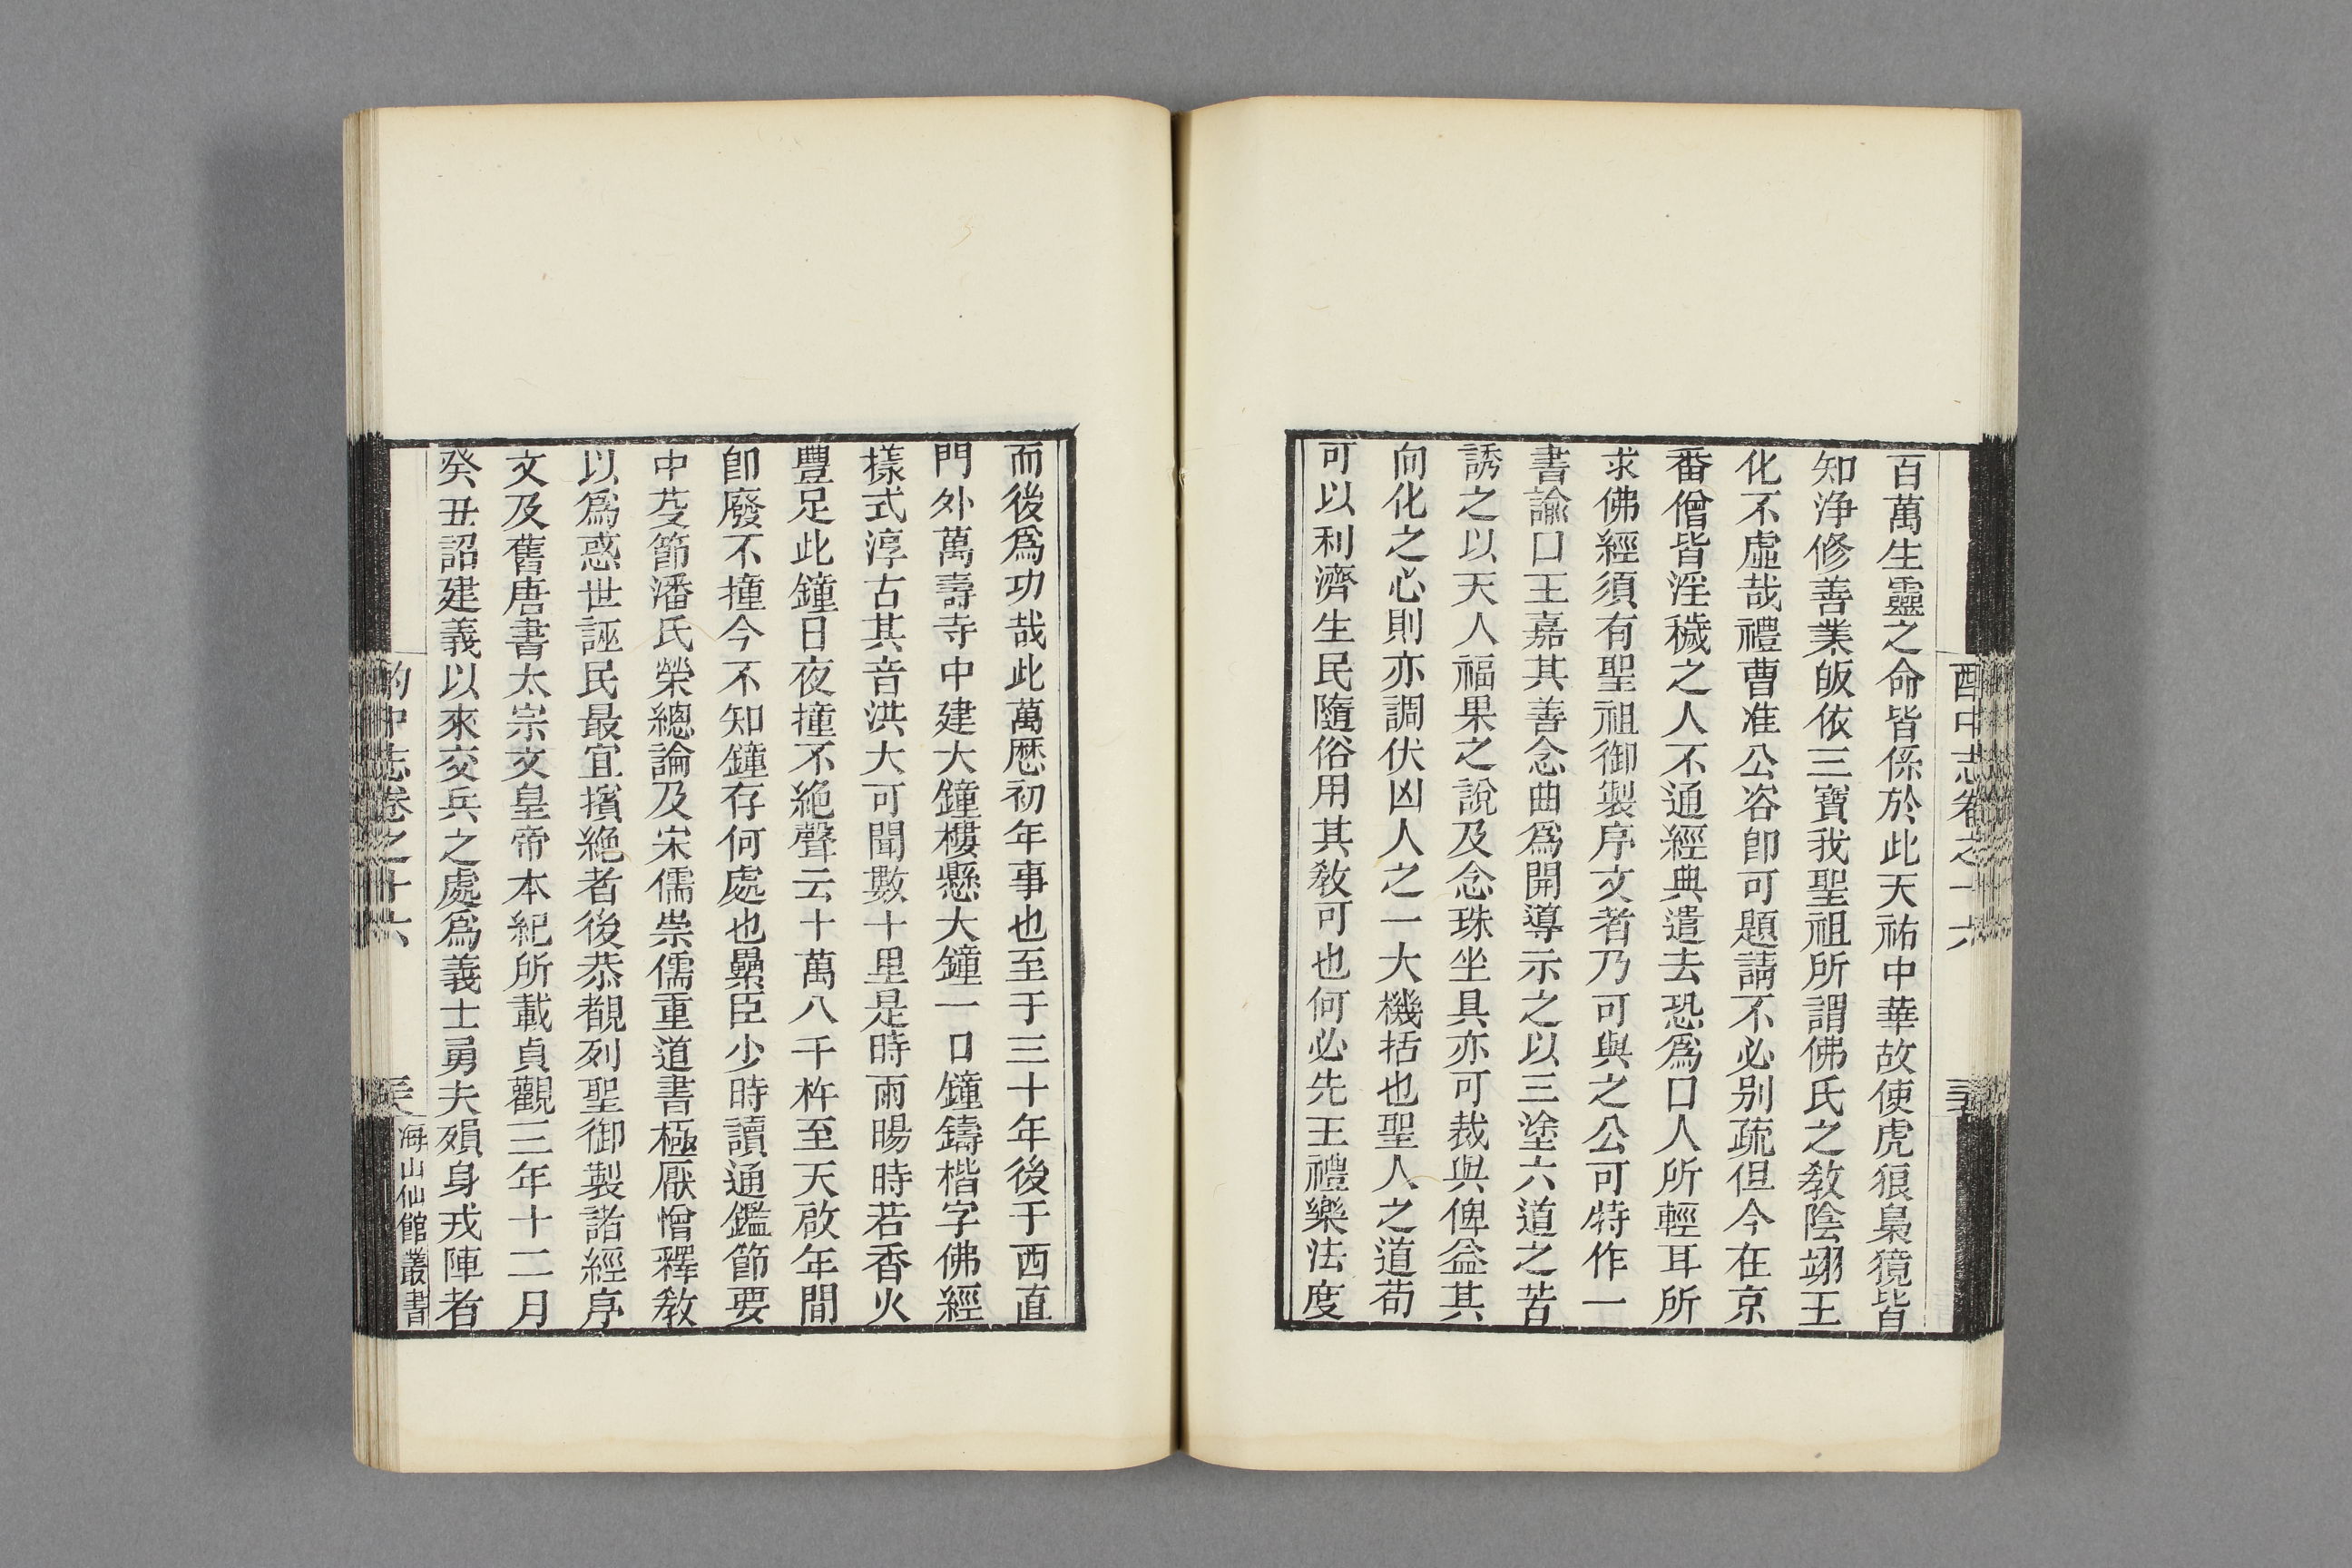 酉中志卷之十六
百萬生靈之命皆係於此天祐中華故使虎狼梟獍皆
知浄修善業皈依三寶我聖祖所謂佛氏之敎陰翊王
化不虛哉禮曹准公咨卽可題請不必别疏但今在京
番僧皆淫穢之人不通經典遣去恐爲口人所輕耳所
求佛經須有聖祖御製序文者乃可與之公可特作一
書諭口王嘉其善念曲爲開導示之以三塗六道之苦
誘之以天人福果之說及念珠坐具亦可裁與俾益其
向化之心則亦調伏凶人之一大機括也聖人之道茍
可以利濟生民隨俗用其敎可也何必先王禮樂法度
而後爲功哉此萬歷初年事也至于三十年後于西直
門外萬壽寺中建大鐘樓懸大鐘一口鐘鑄楷字佛經
樣式淳古其音洪大可聞數十里是時雨暘時若香火
豐足此鐘日夜撞不絶聲云十萬八千杵至天啟年間
卽廢不撞今不知鐘存何處也纍臣少時讀通鑑節要
中芟節潘氏榮總論及宋儒崇儒重道書極厭憎釋敎
以爲惑世誣民最宜擯絶者後恭覩列聖御製諸經序
文及舊唐書太宗文皇帝本紀所載貞觀三年十二月
癸丑詔建義以來交兵之處爲義士勇夫殞身戎陣者
酌中志卷之十六
海山仙館叢書